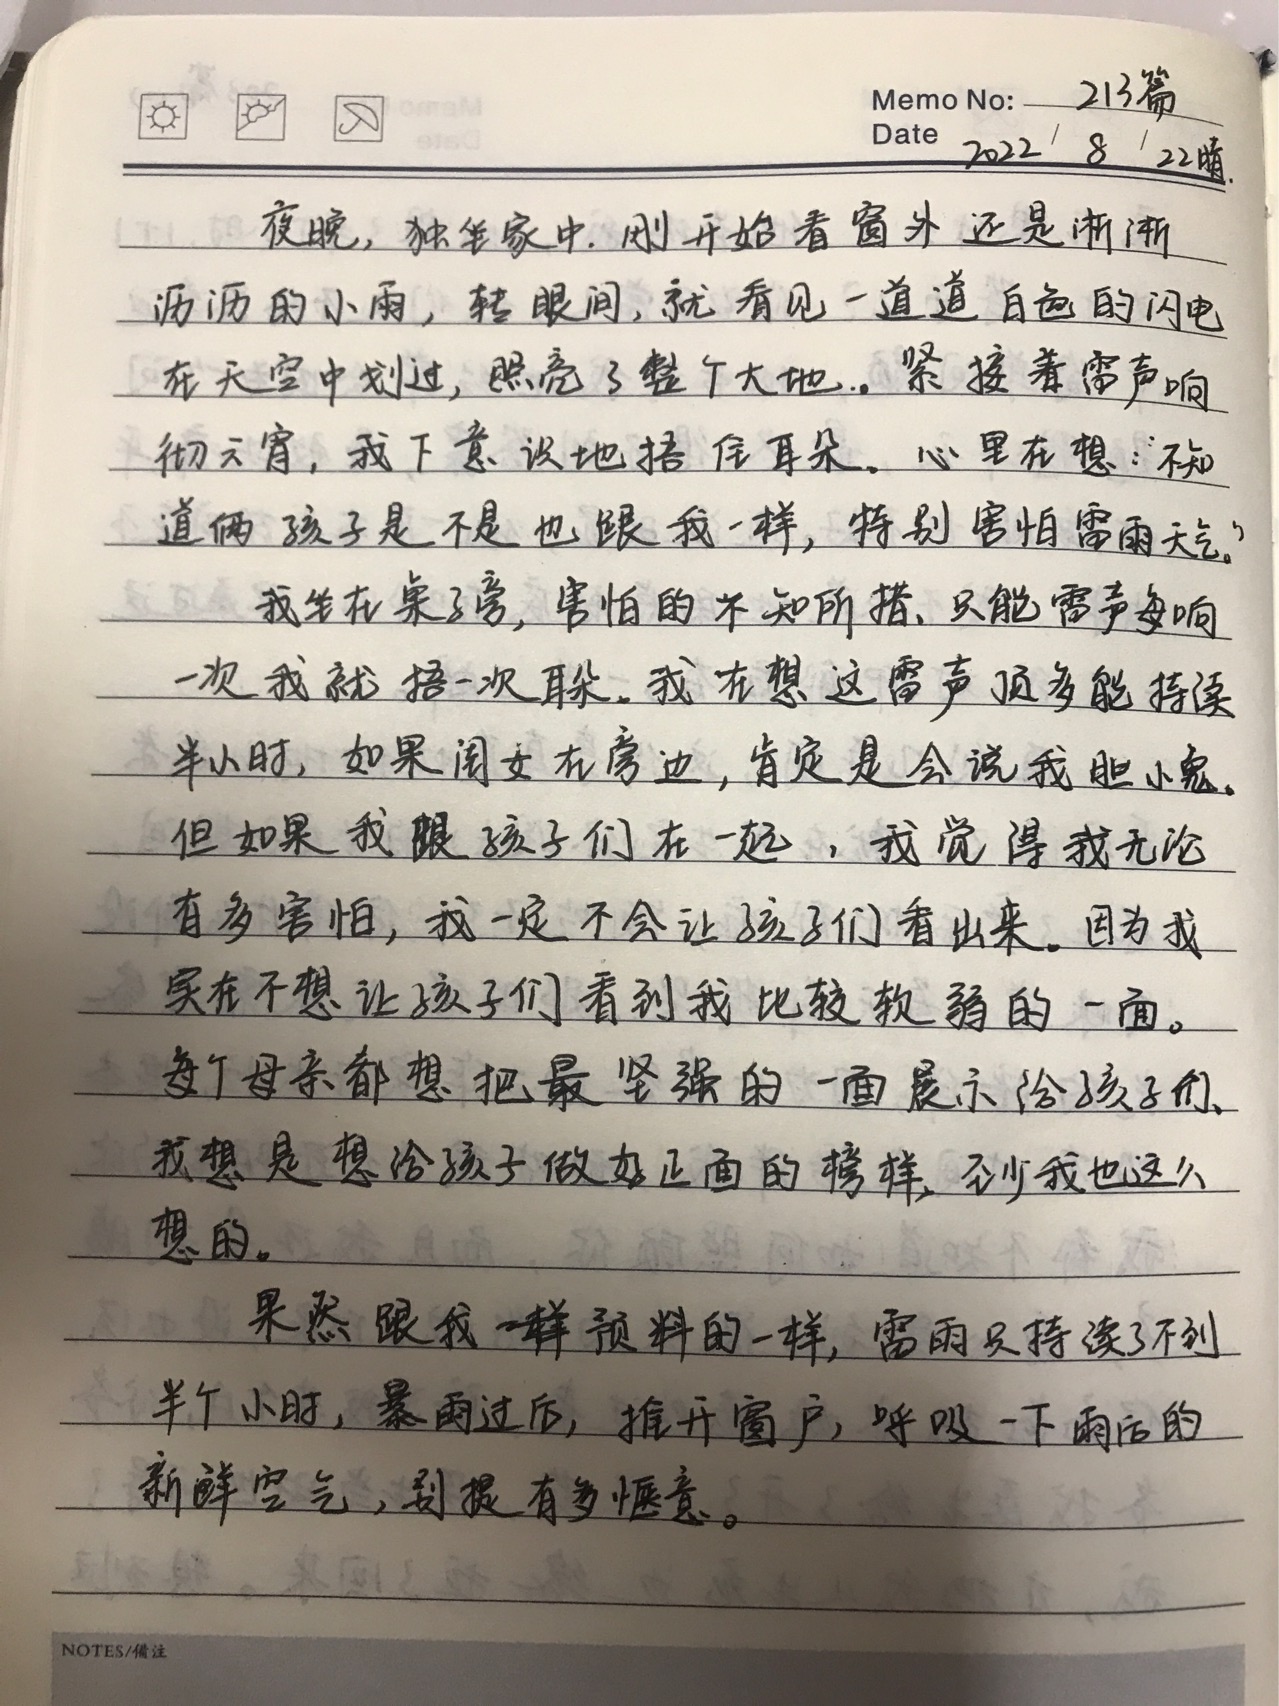 Memo No: 213篇
Date 2022 / 8 / 22晴.
夜晚，独坐家中.刚开始看窗外还是淅淅
沥沥的小雨，转眼间，就看见一道道白色的闪电
在天空中划过，照亮了整个大地..。紧接着雷声响
彻云霄，我下意识地捂住耳朵。心里在想：“不知
道俩孩子是不是也跟我一样，特别害怕雷雨天气。”
我坐在桌子旁，害怕的不知所措、只能雷声每响
一次我就捂一次耳朵。我在想这雷声顶多能持续
半小时，如果闺女在旁边，肯定是会说我胆小鬼。
但如果我跟孩子们在一起，我觉得我无论
有多害怕，我一定不会让孩子们看出来。因为我
实在不想让孩子们看到我比较软弱的一面。
每个母亲都想把最坚强的一面展示给孩子们、
我想是想给孩子做好正面的榜样、至少我也这么
想的。
果然跟我一样预料的一样，雷雨只持续了不到
半个小时，暴雨过后，推开窗户，呼吸一下雨后的
新鲜空气，别提有多惬意。
NOTES/備注